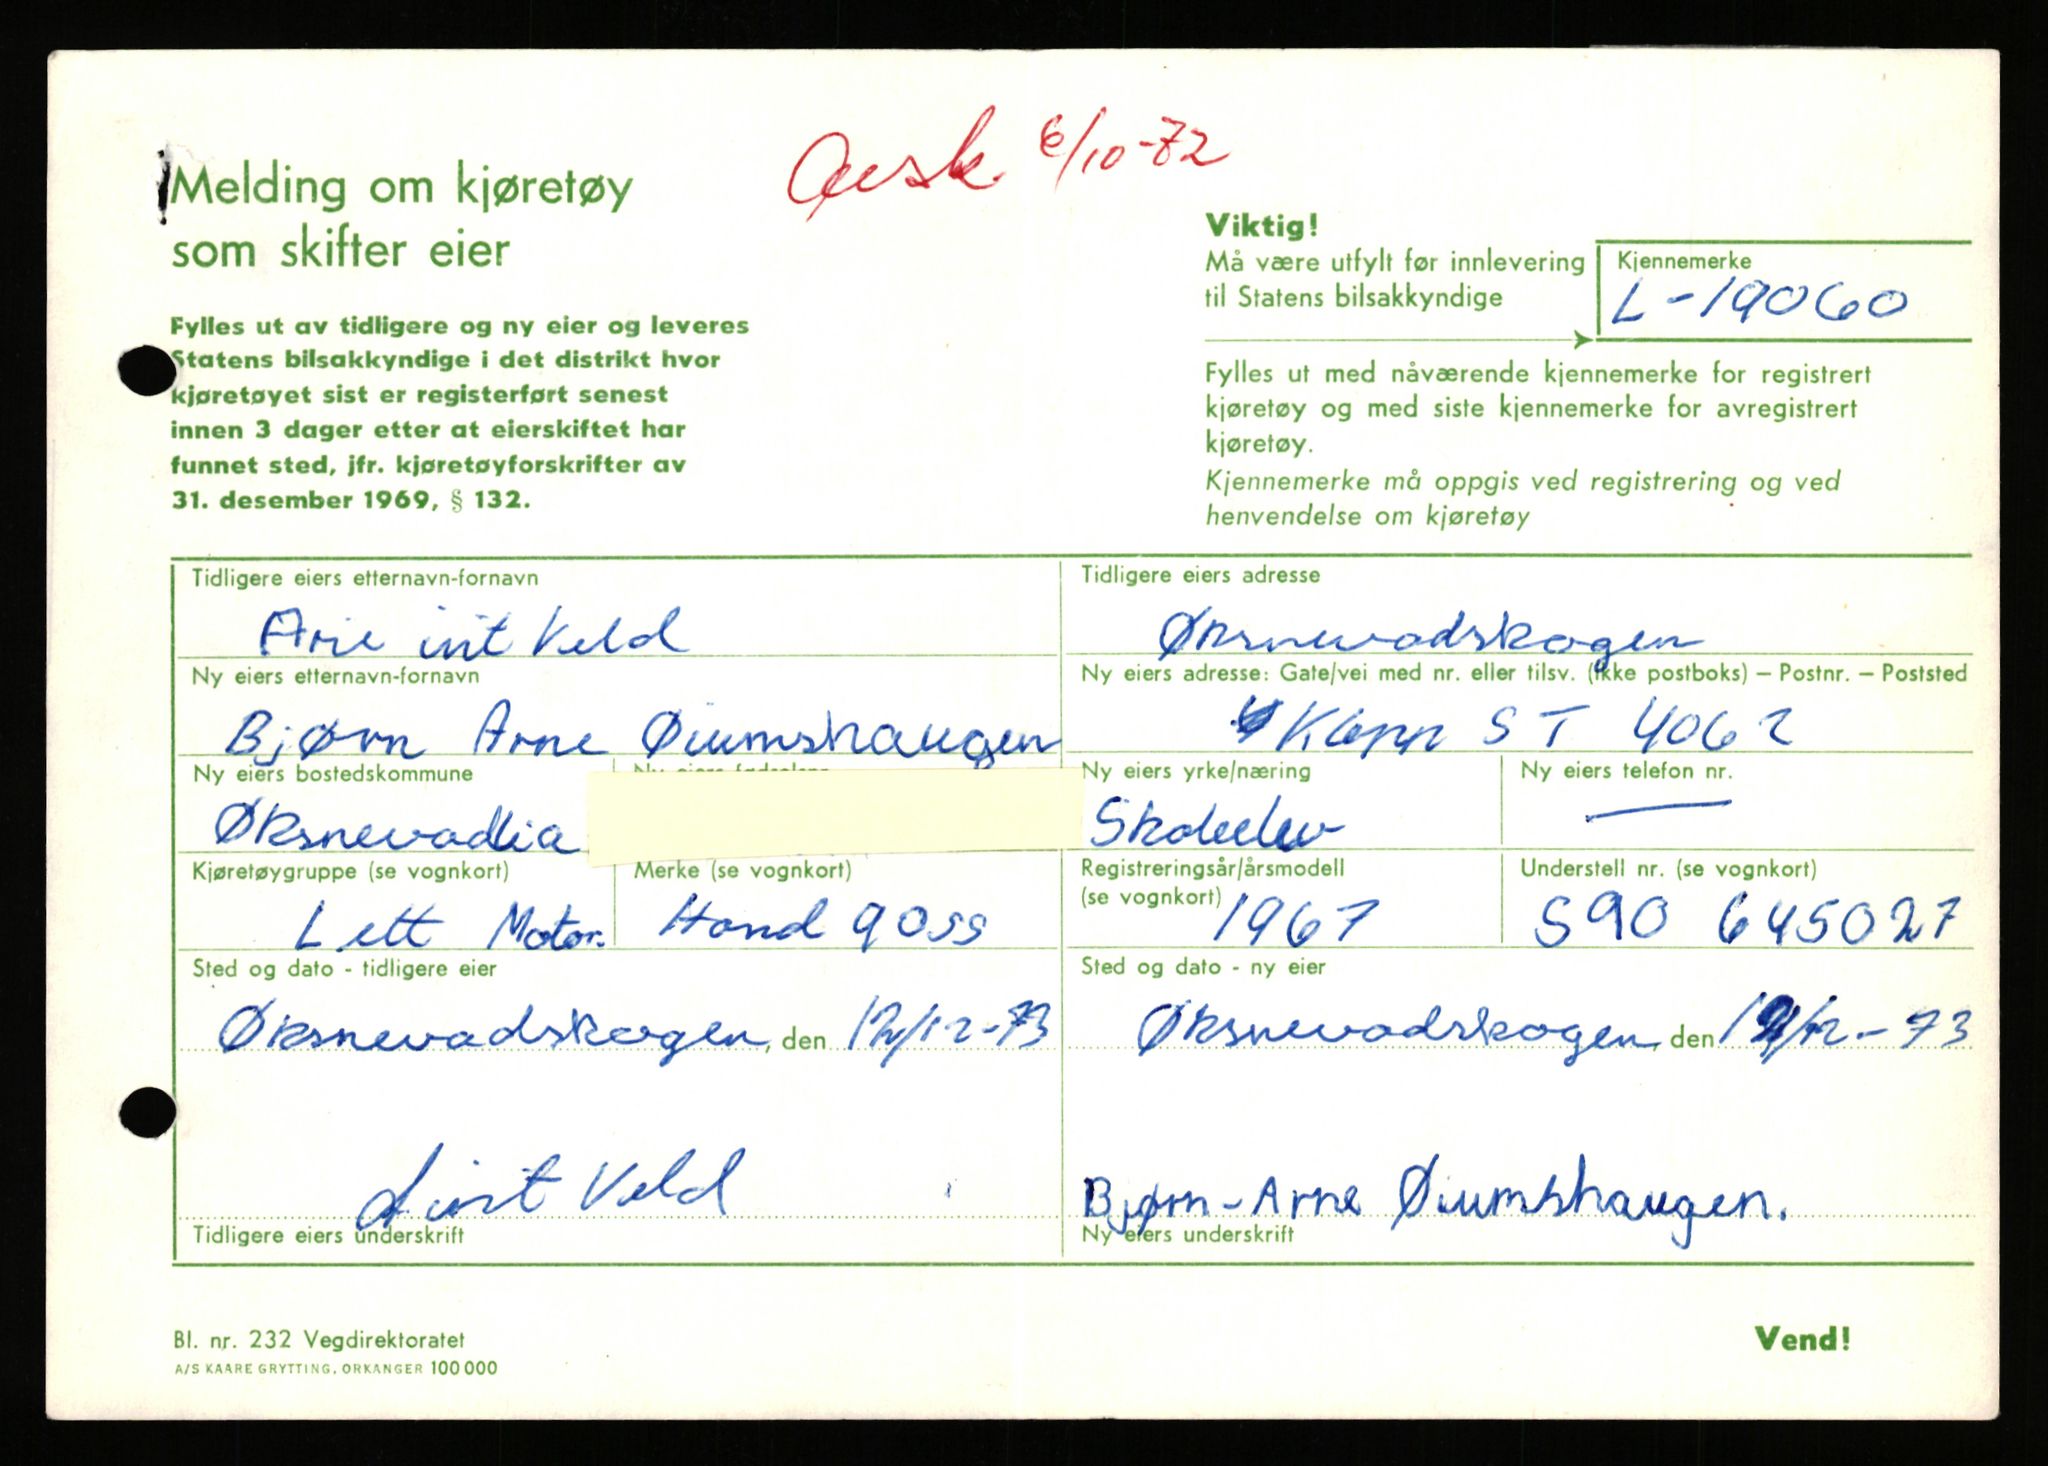 Avsk 6/10-72
Melding om kjøretøy
som skifter eier
Fylles ut av tidligere og ny eier og leveres
Statens bilsakkyndige i det distrikt hvor
kjøretøyet sist er registerført senest
innen 3 dager etter at eierskiftet har
funnet sted, jfr. kjøretøyforskrifter av
31. desember 1969, § 132.
Viktig!
Må være utfylt før innlevering
til Statens bilsakkyndige
Kjennemerke
L-19060
Fylles ut med nåværende kjennemerke for registrert
kjøretøy og med siste kjennemerke for avregistrert
kjøretøy.
Kjennemerke må oppgis ved registrering og ved
henvendelse om kjøretøy
Tidligere eiers etternavn-fornavn
Arie int Veld
Tidligere eiers adresse
Øksnevadskogen
Ny eiers etternavn-fornavn
Bjørn Arne Øiumshaugen
Ny eiers adresse: Gate/vei med nr. eller tilsv. (ikke postboks) – Postnr. – Poststed
Klepp ST 4062
Ny eiers bostedskommune
Øksnevadlia
Ny eiers yrke/næring
Skoleelev
Ny eiers telefon nr.
—
Kjøretøygruppe (se vognkort)
Lett Motor.
Merke (se vognkort)
Hond 90ss
Registreringsår/årsmodell
(se vognkort)
1967
Understell nr. (se vognkort)
S90 645027
Sted og dato - tidligere eier
Øksnevadskogen, den 12/12-73
Sted og dato - ny eier
Øksnevadskogen, den 12/12-73
int Veld
Tidligere eiers underskrift
Bjørn-Arne Øiumshaugen.
Ny eiers underskrift
Bl. nr. 232 Vegdirektoratet
A/S KAARE GRYTTING, ORKANGER 100 000
Vend!